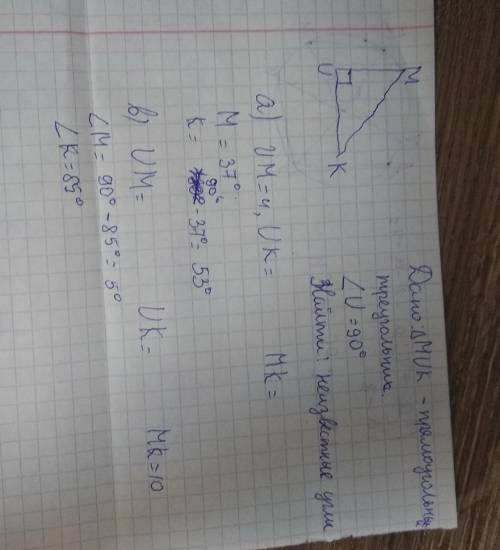 Дано ΔMUK - прямоугольный
треугольник.
∠U = 90°
Найти: неизвестные углы
M
U
K
а) UM = 4, UK = MK =
M = 37°
K = 90° - 37° = 53°
в) UM = UK = MK = 10
∠M = 90° - 85° = 5°
∠K = 85°